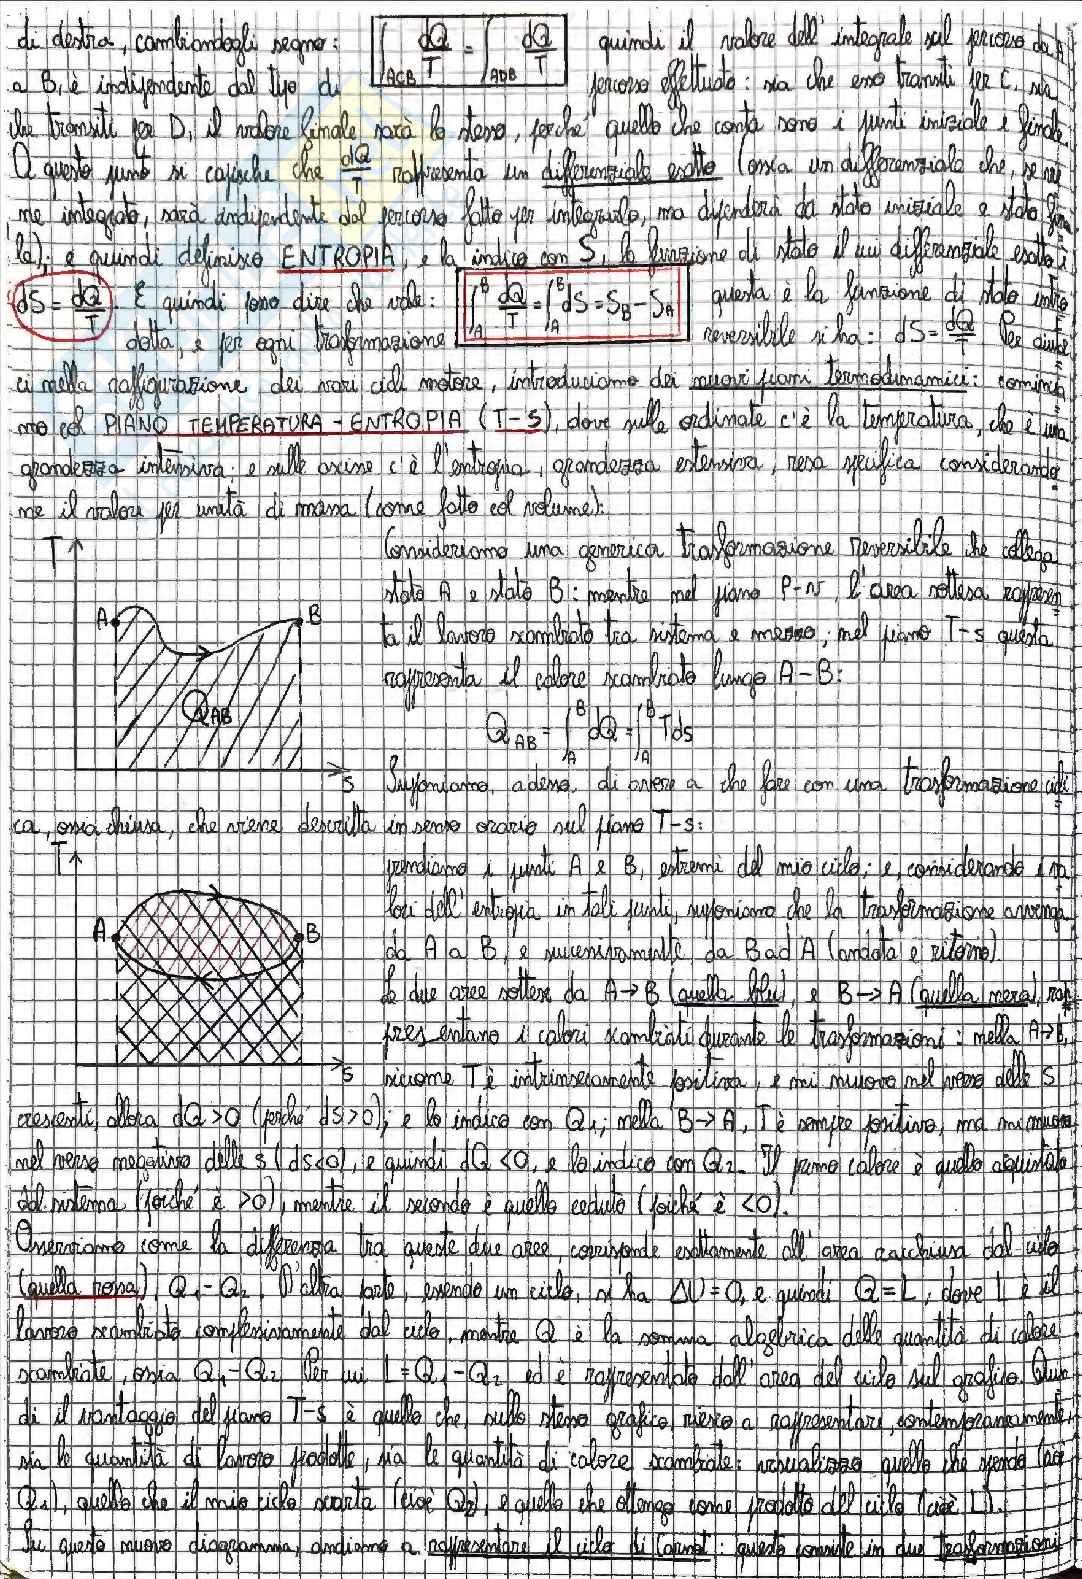 di destra, cambiandogli segno: ∫ACB dQ/T = ∫ADB dQ/T quindi il valore dell'integrale sul percorso da A
a B, è indipendente dal tipo di percorso effettuato: sia che esso transiti per C, sia
che transiti per D, il valore finale sarà lo stesso, perché quello che conta sono i punti iniziale e finale.
A questo punto si capisce che dQ/T rappresenta un differenziale esatto (ossia un differenziale che, se vie
me integrato, sarà indipendente dal percorso fatto per integrarlo, ma dipenderà da stato iniziale e stato fina
le); e quindi definisco ENTROPIA, e la indico con S, la funzione di stato il cui differenziale esatto è
dS = dQ/T. E quindi posso dire che vale: ∫A^B dQ/T = ∫A^B dS = SB - SA questa è la funzione di stato intro
dotta, e per ogni trasformazione reversibile si ha: dS = dQ/T. Per
ci nella raffigurazione dei vari cicli motore, introduciamo dei nuovi piani termodinamici: comincia
mo col PIANO TEMPERATURA-ENTROPIA (T-S), dove sulle ordinate c'è la temperatura, che è una
grandezza intensiva; e sulle ascisse c'è l'entropia, grandezza estensiva, resa specifica considerando
ne il valore per unità di massa (come fatto col volume):
T
A B
QAB
s
Consideriamo una generica trasformazione reversibile che collega
stato A e stato B: mentre nel piano P-v, l'area sottesa rappresen
ta il lavoro scambiato tra sistema e mezzo; nel piano T-s questa
rappresenta il calore scambiato lungo A-B:
QAB = ∫A^B dQ = ∫A^B Tds
Supponiamo, adesso, di avere a che fare con una trasformazione cicli
ca, ossia chiusa, che viene descritta in senso orario sul piano T-s:
T
A B
s
prendiamo i punti A e B, estremi del mio ciclo; e, considerando i va
lori dell'entropia in tali punti, supponiamo che la trasformazione avvenga
da A a B, e successivamente da B ad A (andata e ritorno).
Le due aree sottese da A→B (quella blu), e B→A (quella nera), rap
presentano i calori scambiati durante le trasformazioni: nella A→B,
siccome T è intrinsecamente positiva, e mi muovo nel verso delle S
crescenti, allora dQ>0 (perché dS>0); e lo indico con Q1; nella B→A, T è sempre positiva, ma mi muovo
nel verso negativo delle s (ds<0), e quindi dQ<0, e lo indico con Q2. Il primo calore è quello acquistato
dal sistema (poiché è >0), mentre il secondo è quello ceduto (poiché è <0).
Osserviamo come la differenza tra queste due aree, corrisponde esattamente all'area racchiusa dal ciclo
(quella rossa), Q1-Q2. D'altra parte, essendo un ciclo, si ha ΔU=0, e quindi Q=L, dove L è il
lavoro scambiato complessivamente dal ciclo, mentre Q è la somma algebrica delle quantità di calore
scambiate, ossia Q1-Q2. Per cui L=Q1-Q2 ed è rappresentato dall'area del ciclo sul grafico. Quin
di il vantaggio del piano T-s è quello che, sullo stesso grafico, riesco a rappresentare, contemporaneamente,
sia le quantità di lavoro prodotte, sia le quantità di calore scambiate: visualizzo quello che spendo (cioè
Q1), quello che il mio ciclo scarta (cioè Q2), e quello che ottengo come prodotto del ciclo (cioè L).
Su questo nuovo diagramma, andiamo a rappresentare il ciclo di Carnot: questo consiste in due trasformazioni